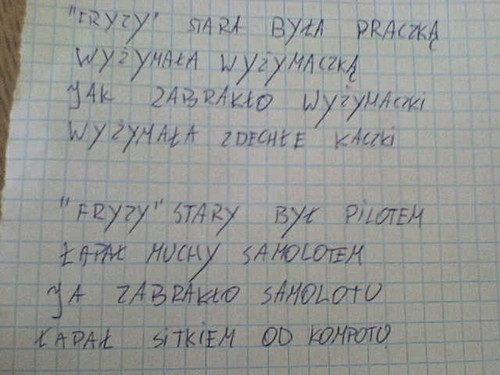 "FRYZY" STARA BYŁA PRACZKĄ
WYŻYMAŁA WYŻYMACZKĄ
JAK ZABRAKŁO WYŻYMACZKI
WYŻYMAŁA ZDECHŁE KACZKI
"FRYZY" STARY BYŁ PILOTEM
ŁAPAŁ MUCHY SAMOLOTEM
JA ZABRAKŁO SAMOLOTU
ŁAPAŁ SITKIEM OD KOMPOTU